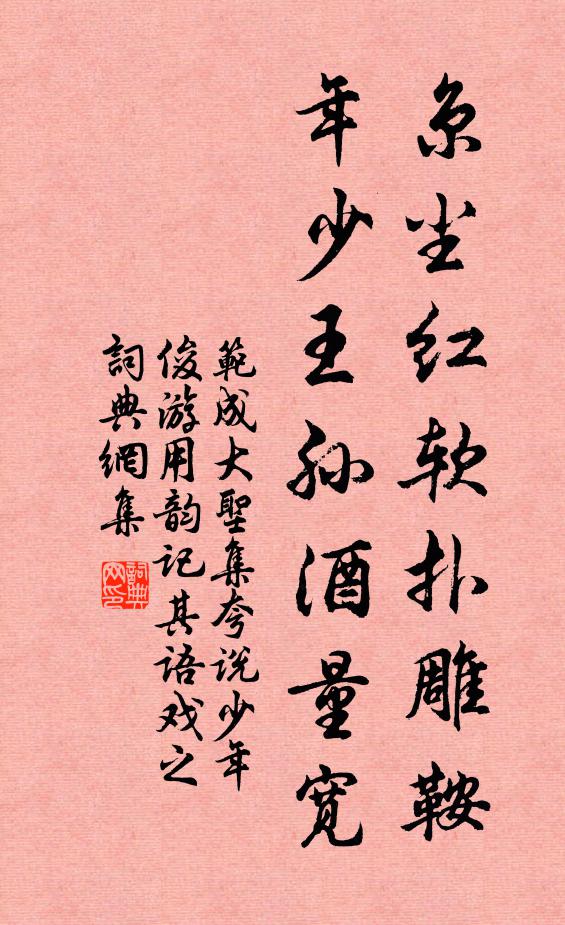 京尘红软扑雕鞍
年少王孙酒量宽
範成大聖集夸说少年
俊游用韵记其语戏之
詞典網集
詞典
网印